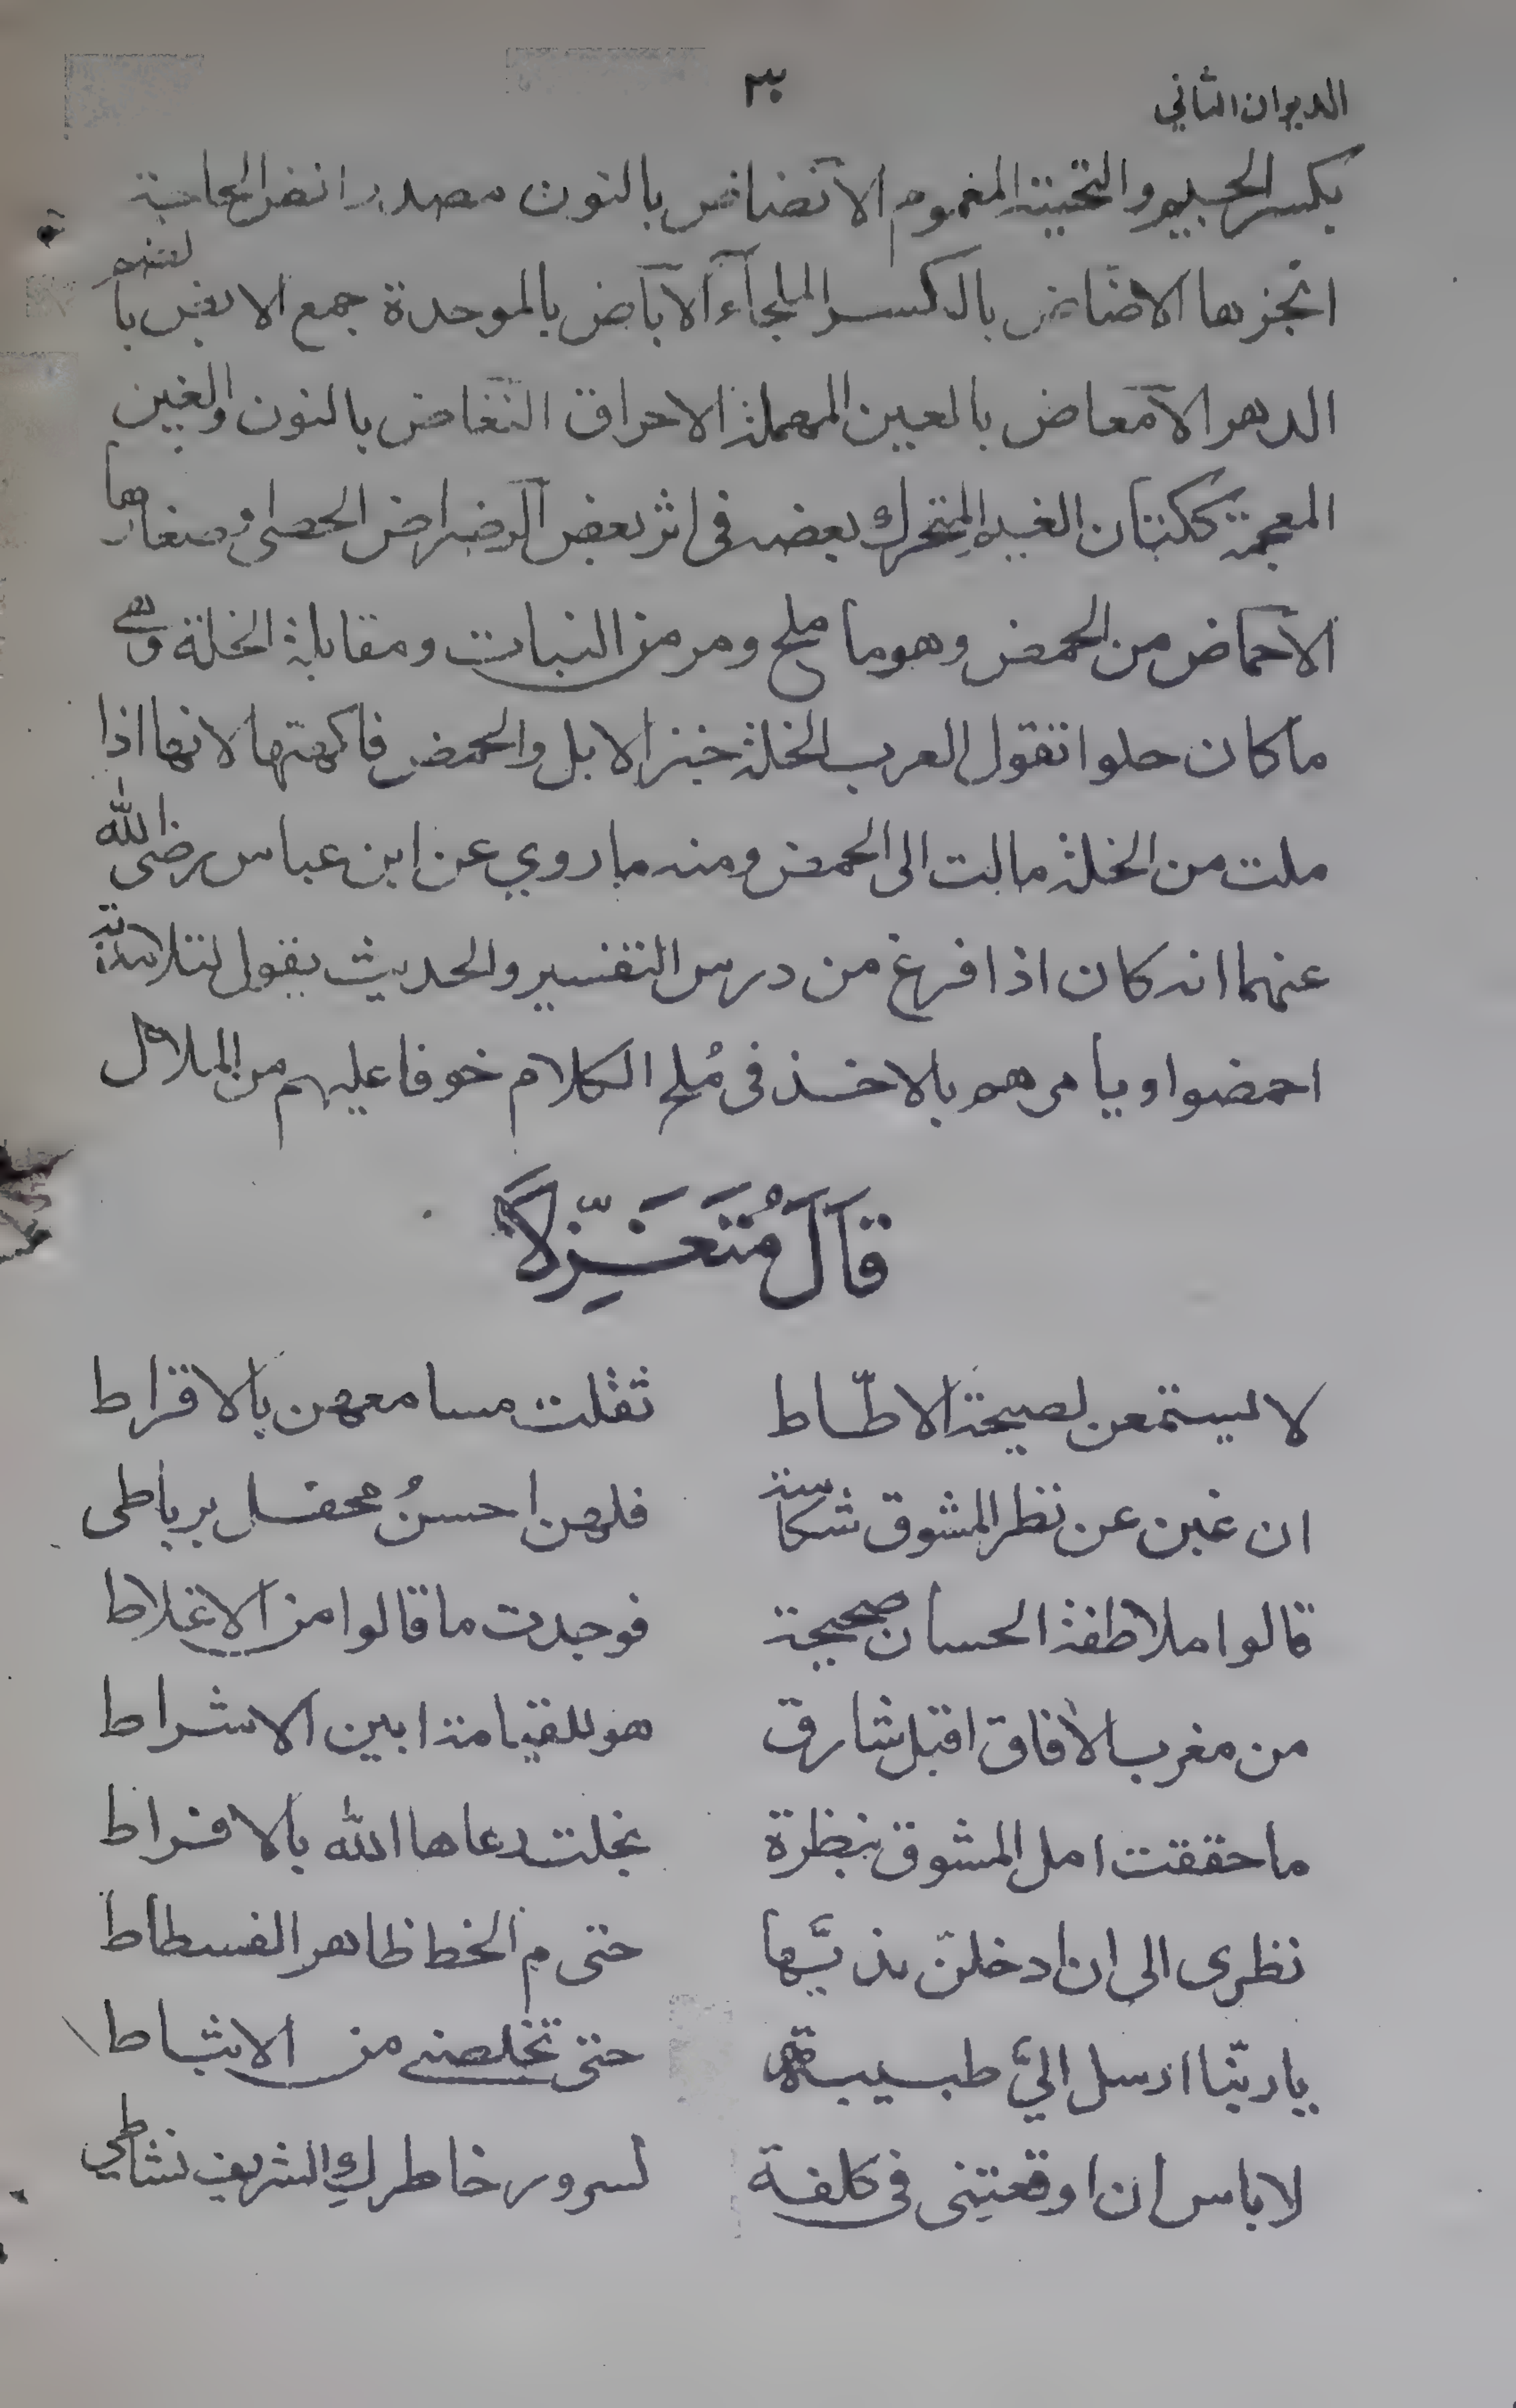 الديوان الثاني
٣٠
بكسر الجيم والتحتية المغموم الانضاض بالنون مصدر انض الحاجة
انجزها الاضاض بالكسر الملجاء الآباض بالموحدة جمع الابض بالضم
الدهر الامعاض بالعين المهملة الاحراق النغاض بالنون والغين
المعجمة ككتان الغيم المتحرك بعضه فى اثر بعض الرضراض الحصى وصغارها
الاحماض من الحمض وهو ما ملح ومر من النبات ومقابلة الخلة وهى
ما كان حلوا تقول العرب الخلة خبز الابل والحمض فاكهتها لانها اذا
ملت من الخلة مالت الى الحمض ومنه ما روي عن ابن عباس رضى الله
عنهما انه كان اذا فرغ من درس التفسير والحديث يقول لتلامذته
احمضوا ويامرهم بالاخذ فى مُلح الكلام خوفا عليهم من الملال
قَالَ مُتَغَزِّلًا
لا يستمعن لصيحة الاطّاط ثقلت مسامعهن بالاقراط
ان غبن عن نظر المشوق شكاسة فلهن احسنُ محفل برباطى
قالوا ملاطفة الحسان صحيحة فوجدت ما قالوا من الاغلاط
من مغرب الافاق اقبل شارق هو للقيامة ابين الاشراط
ما حققت امل المشوق بنظرة بخلت رعاها الله بالافراط
نظرى الى ان ادخلنّ بذيّها حتى م الخط ظاهر الفسطاط
يا ربّنا ارسل اليَّ طبيبة حتى تخلصنى من الاثباط
لا باس ان اوقعتِنى فى كلفة لسرور خاطركِ الشريف نشاطي